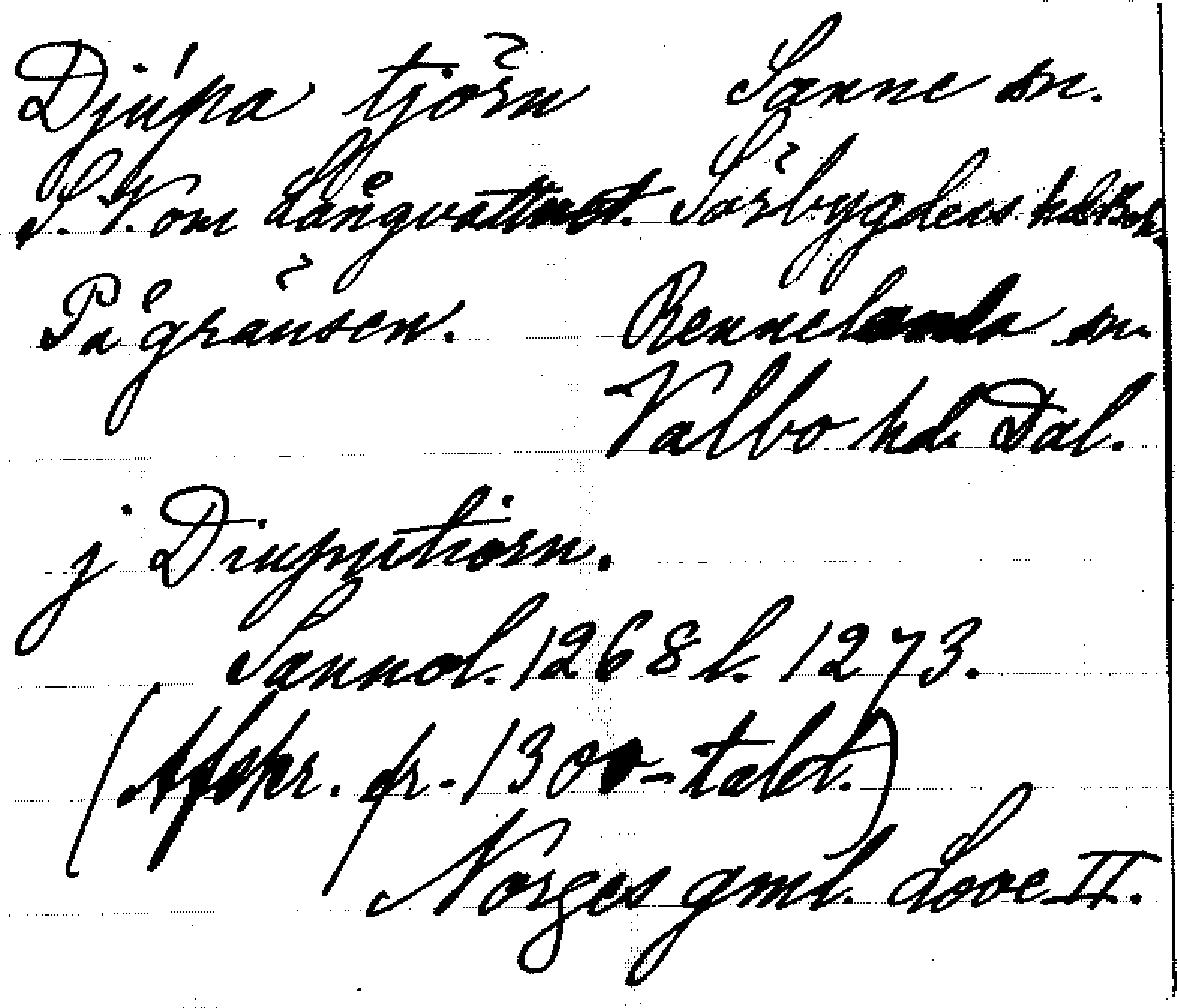 Djúpa tjörn Sanne sn.
S. V. om Långvattnet. Sörbygdens hd Boh.
På gränsen. Rennelanda sn.
Valbo hd. Dal.
j Diuputiorn.
Sannol. 1268 l. 1273.
(Afskr. fr. 1300-talet.)
Norges gml. Love II.